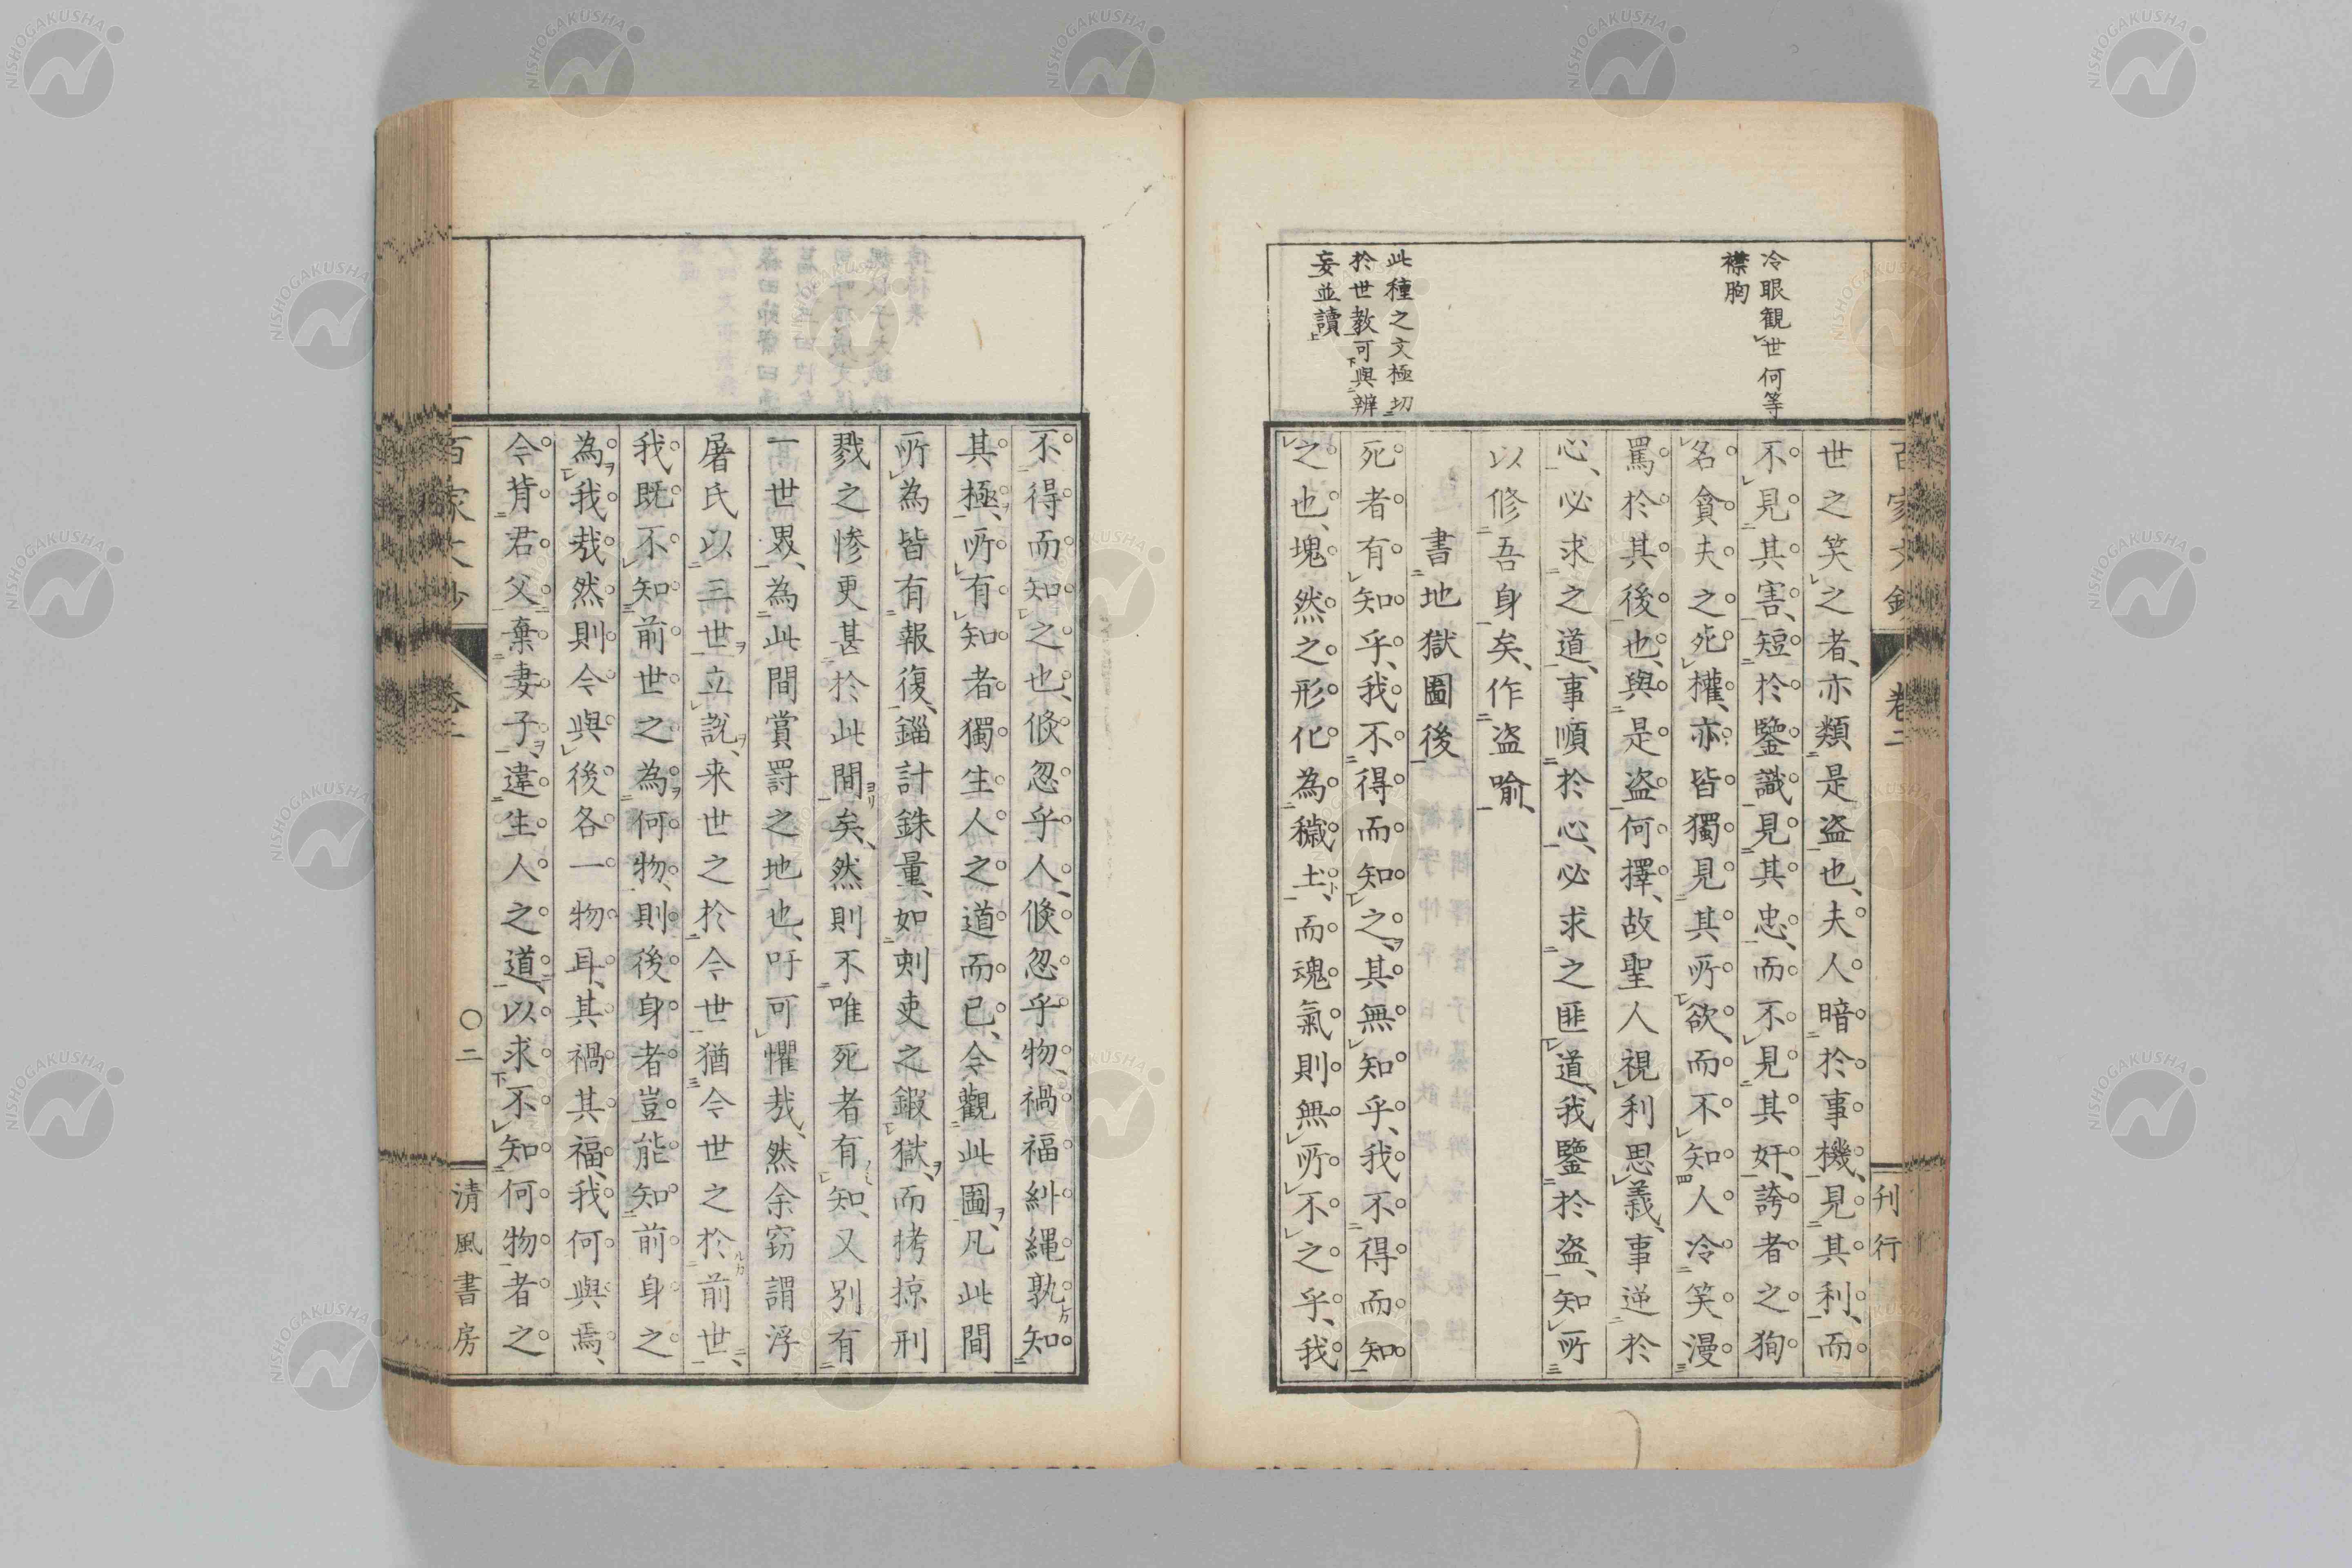 冷眼観世何等
襟胸
此種之文極切
於世教可與辨
妄並讀
刊行
世之笑之者、亦類是盗也、夫人暗於事機、見其利、而
不見其害、短於鑒識見其忠、而不見其奸、誇者之狥
名貪夫之死權、亦皆獨見其所欲、而不知人冷笑漫
罵於其後也、與是盗何擇、故聖人視利思義、事逆於
心、必求之道、事順於心、必求之匪道、我鑒於盗、知所
以修吾身矣、作盗喻、
書地獄圖後
死者有知乎、我不得而知之、其無知乎、我不得而知
之也、塊然之形化為穢土、而魂氣則無所不之乎、我
不得而知之也、倏忽乎人、倏忽乎物、禍福糾縄孰知
其極、所有知者獨生人之道而已、今觀此圖、凡此間
所為皆有報復、錙計銖量、如刺吏之鍛獄、而拷掠刑
戮之惨更甚於此間矣、然則不唯死者有知、又別有
一世界、為此間賞罰之地也、吁可懼哉、然余窃謂浮
屠氏以三世立説、来世之於今世猶今世之於前世、
我既不知前世之為何物、則後身者豈能知前身之
為我哉然則今與後各一物耳、其禍其福、我何與焉、
今背君父棄妻子、違生人之道、以求不知何物者之
〇二
清風書房
NISHOGAKUSHA